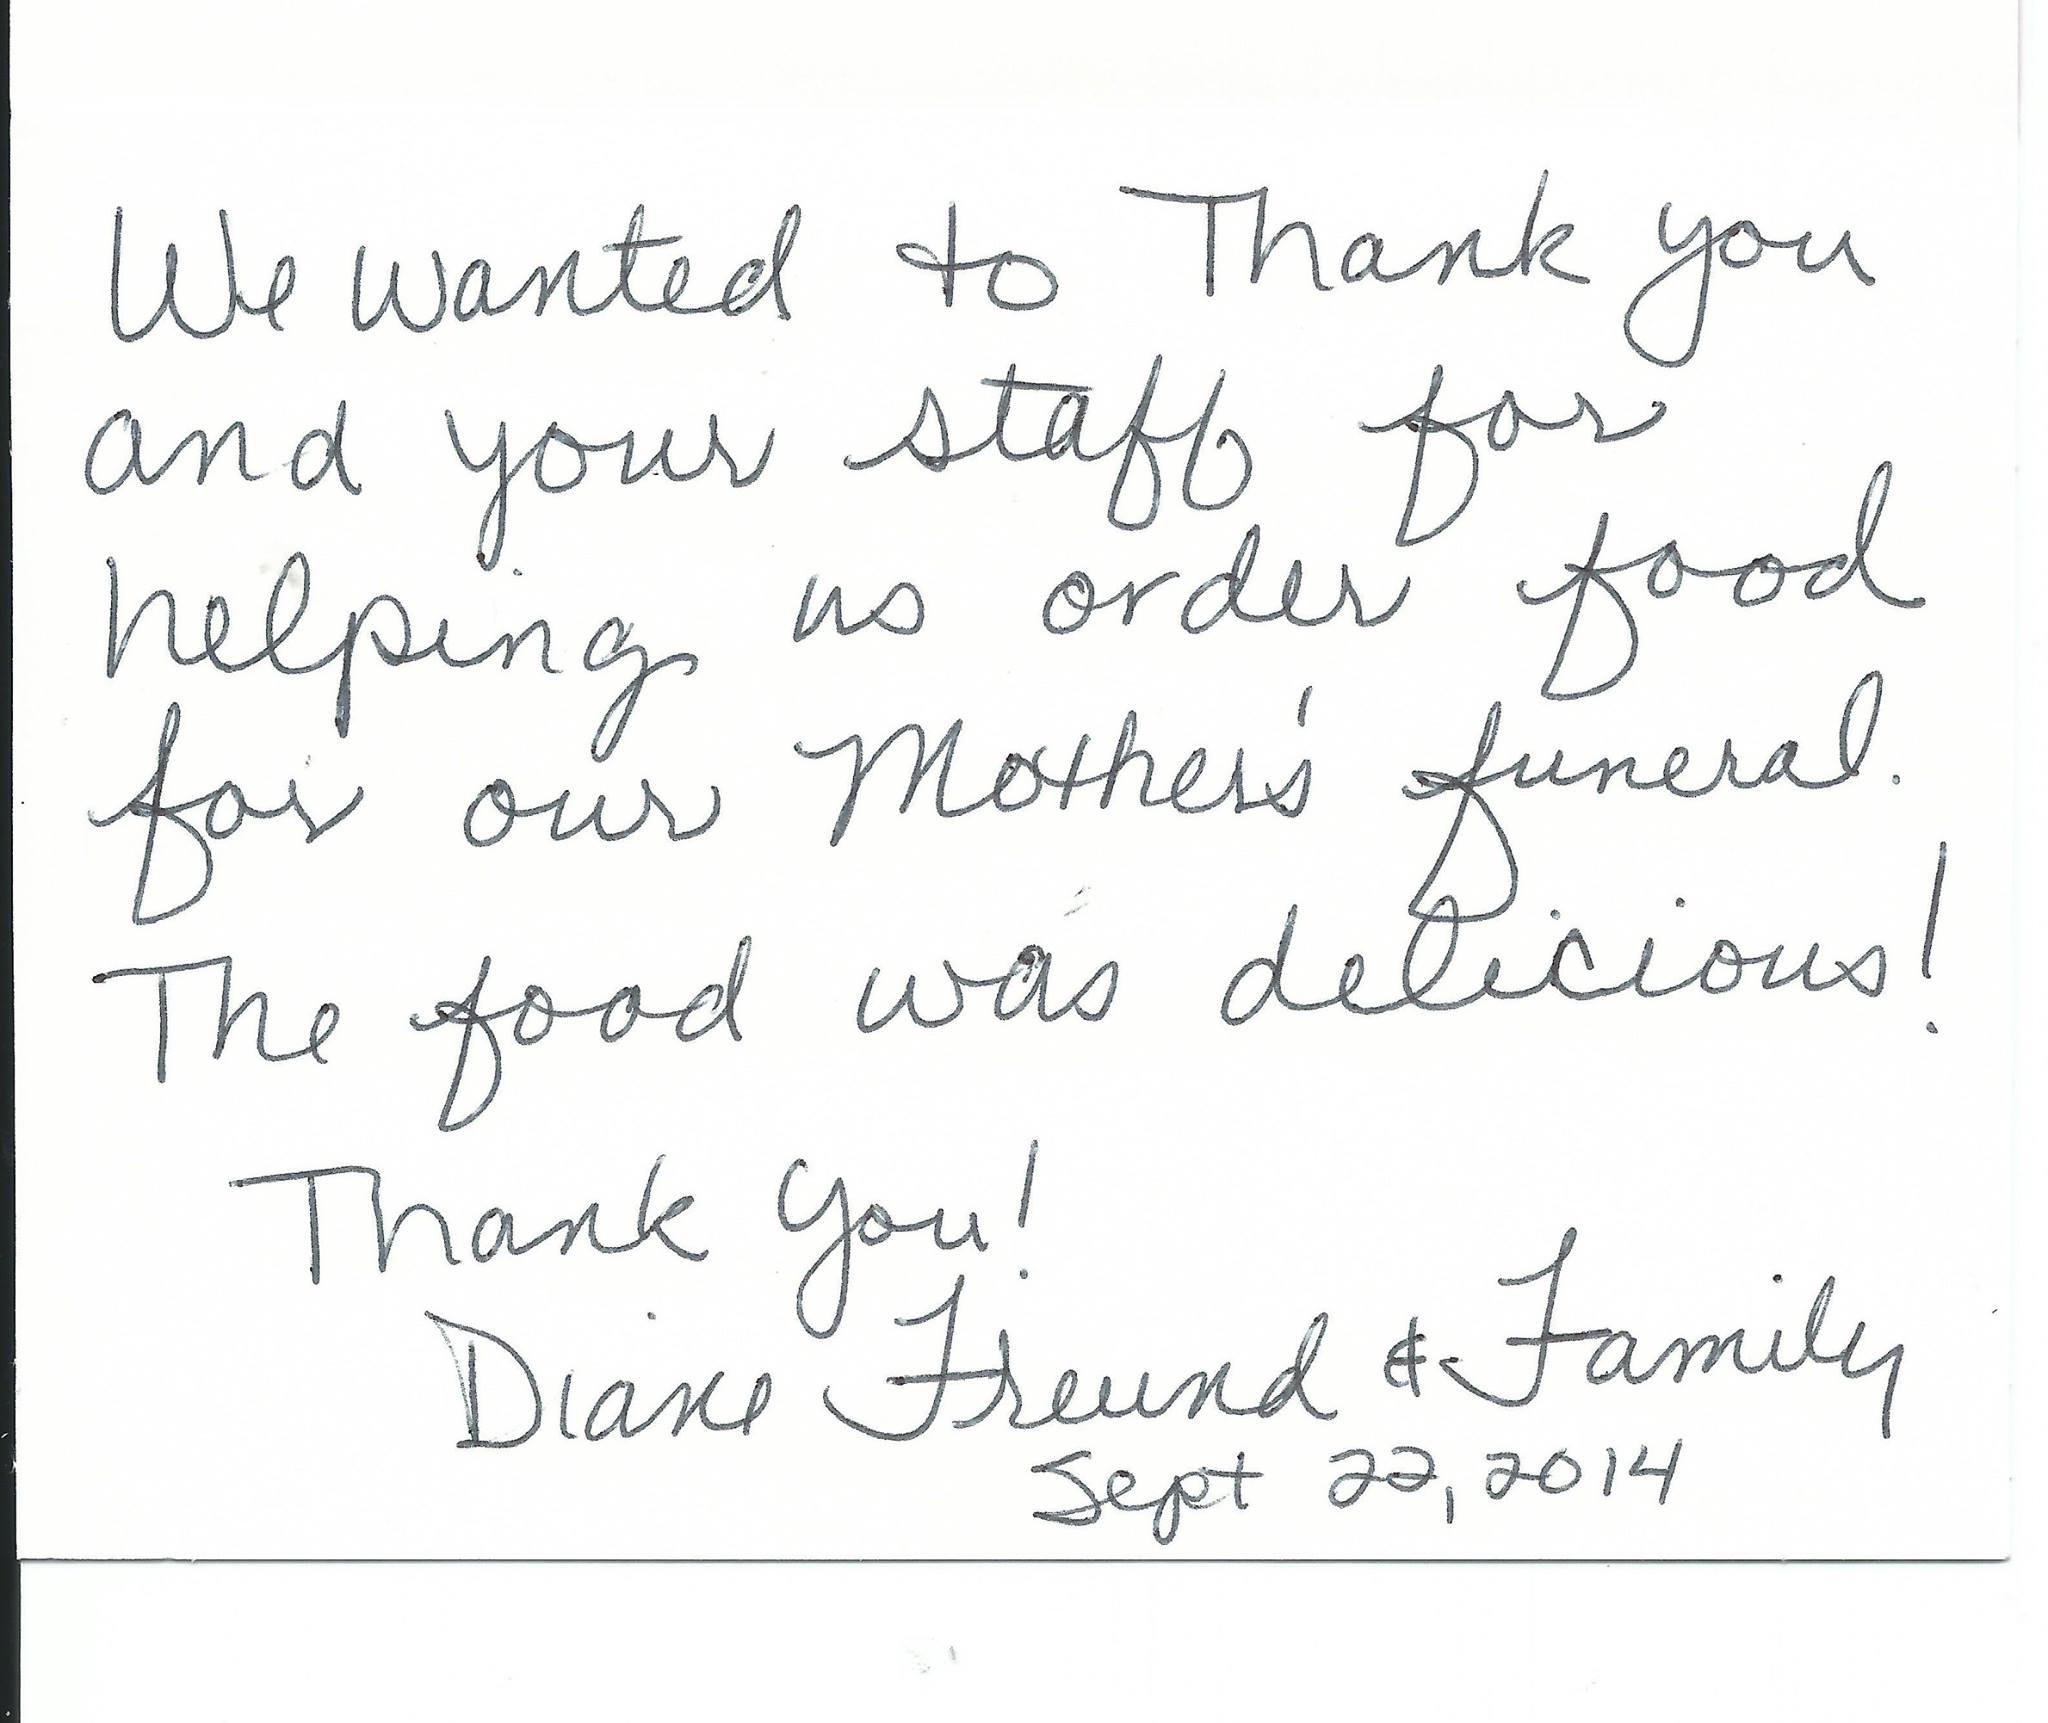 We wanted to Thank you
and your staff for
helping us order food
for our Mother's funeral.
The food was delicious!
Thank You!
Diane Freund & Family
Sept 22, 2014